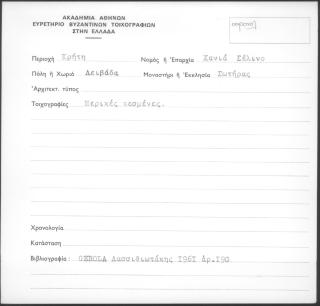 ΑΚΑΔΗΜΙΑ ΑΘΗΝΩΝ
ΕΥΡΕΤΗΡΙΟ ΒΥΖΑΝΤΙΝΩΝ ΤΟΙΧΟΓΡΑΦΙΩΝ
ΣΤΗΝ ΕΛΛΑΔΑ
Περιοχή Κρήτη Νομός ή Ἐπαρχία Χανιά Σέλινο
Πόλη ή Χωριό Λειβάδα Μοναστήρι ή Ἐκκλησία Σωτήρας
Ἀρχιτεκτ. τύπος
Τοιχογραφίες Μερικές πεσμένες.
Χρονολογία
Κατάσταση
Βιβλιογραφία: GEROLA Λασσιθιωτάκης 1961 ἀρ.190